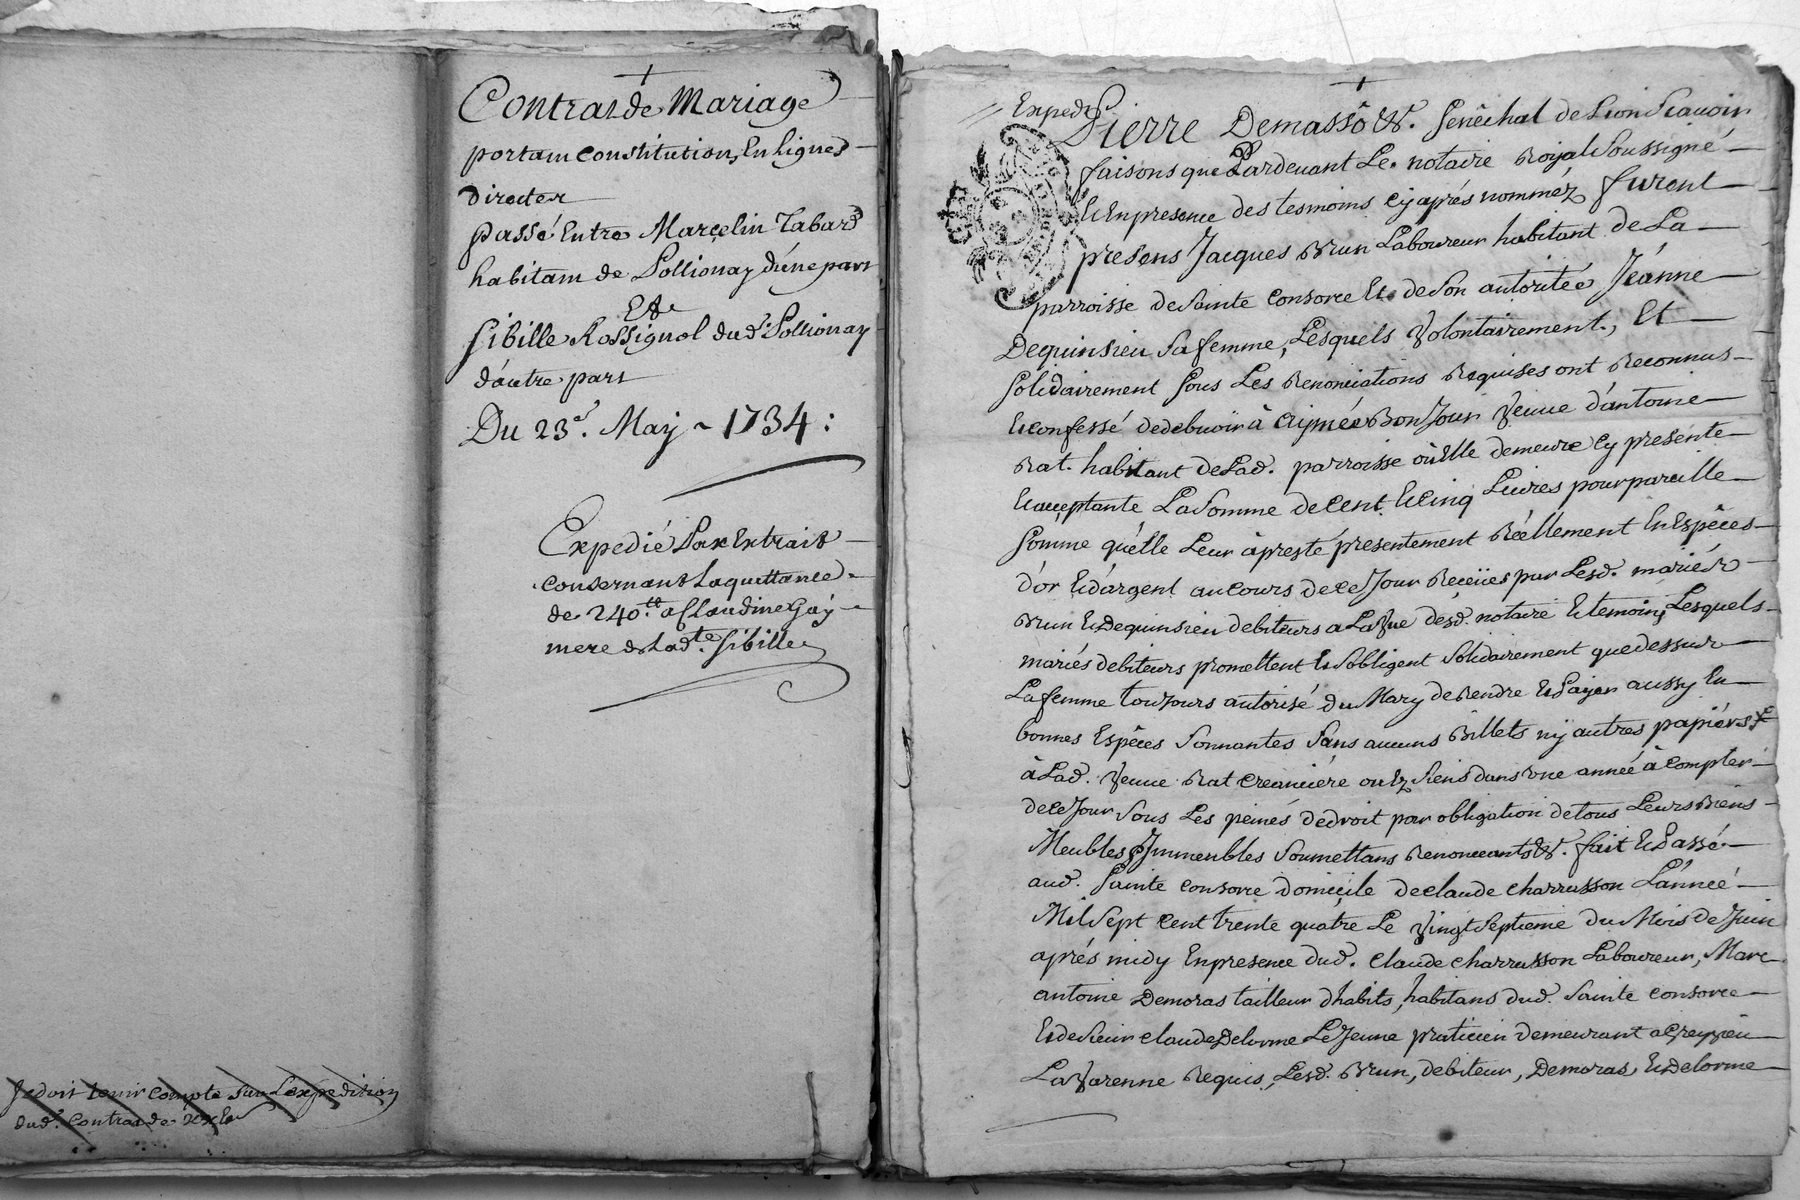 Contrat de Mariage
portant constitution En Ligne
directe
passé Entre Marcelin Tabard
habitant de Pollionay d'une part
Et
Sibille Rossignol dud. Pollionay
d'autre part
Du 23e. May ~ 1734 :
Expedié Par Extrait
consernant La quittance
de 240tt a Claudine Gay
mere de Lad.te Sibille
Je doit tenir compte sur L'expedition
dud. contrat de
Exped.
Pierre Demasso &. Senéchal de Lion Scavoir
faisons que Pardevant Le notaire Royal Soussigné
Et En presence des tesmoins cy aprés nommez furent
presens Jacques Brun Laboureur habitant de La
parroisse de Sainte Consorce Et de Son autoritée Jeánne
Dequinsieu Sa femme, Lesquels Volontairement, Et
Solidairement Sous Les Renonciations Requises ont Reconnus
Et confessé de debvoir à Aymée Bonjour Veuve d'antoine
Rat. habitant de Lad. parroisse où Elle demeure cy presente
Et acceptante La Somme de Cent Et Cinq Livres pour pareille
Somme qu'elle Leur à presté presentement Réellement En Espêces
d'or Et d'argent au Cours de ce Jour Receües par Lesd. mariés
Brun Et Dequinsieu debiteurs a La Vue desd. notaire Et temoins, Lesquels
mariés debiteurs promettent Et S'obligent Solidairement que dessus
La femme toujours autorisé du Mary de Rendre Et Payer aussy En
bonnes Espêces Sonnantes Sans aucuns Billets ny autres papiérs
à Lad. Veuve Rat creanciére ou Ez Siens dans une année à compter
de ce Jour Sous Les peinés de droit par obligation de tous Leurs Biens
Meubles & Immeubles Soumettans Renonceants &. fait Et Passé
aud. Sainte Consorce domicile de Claude Charrasson L'année
Mil Sept Cent trente quatre Le Vingt Septieme du Mois de Juin
aprés midy En presence dud. Claude Charrasson Laboureur, Marc
antoine Demoras tailleur d'habits, habitans dud. Sainte Consorce
Et de Sieur Claude Delorme Le Jeune praticien demeurant a Greyzieu
La Varenne Requis, Lesd. Brun, debiteur, Demoras Et Delorme